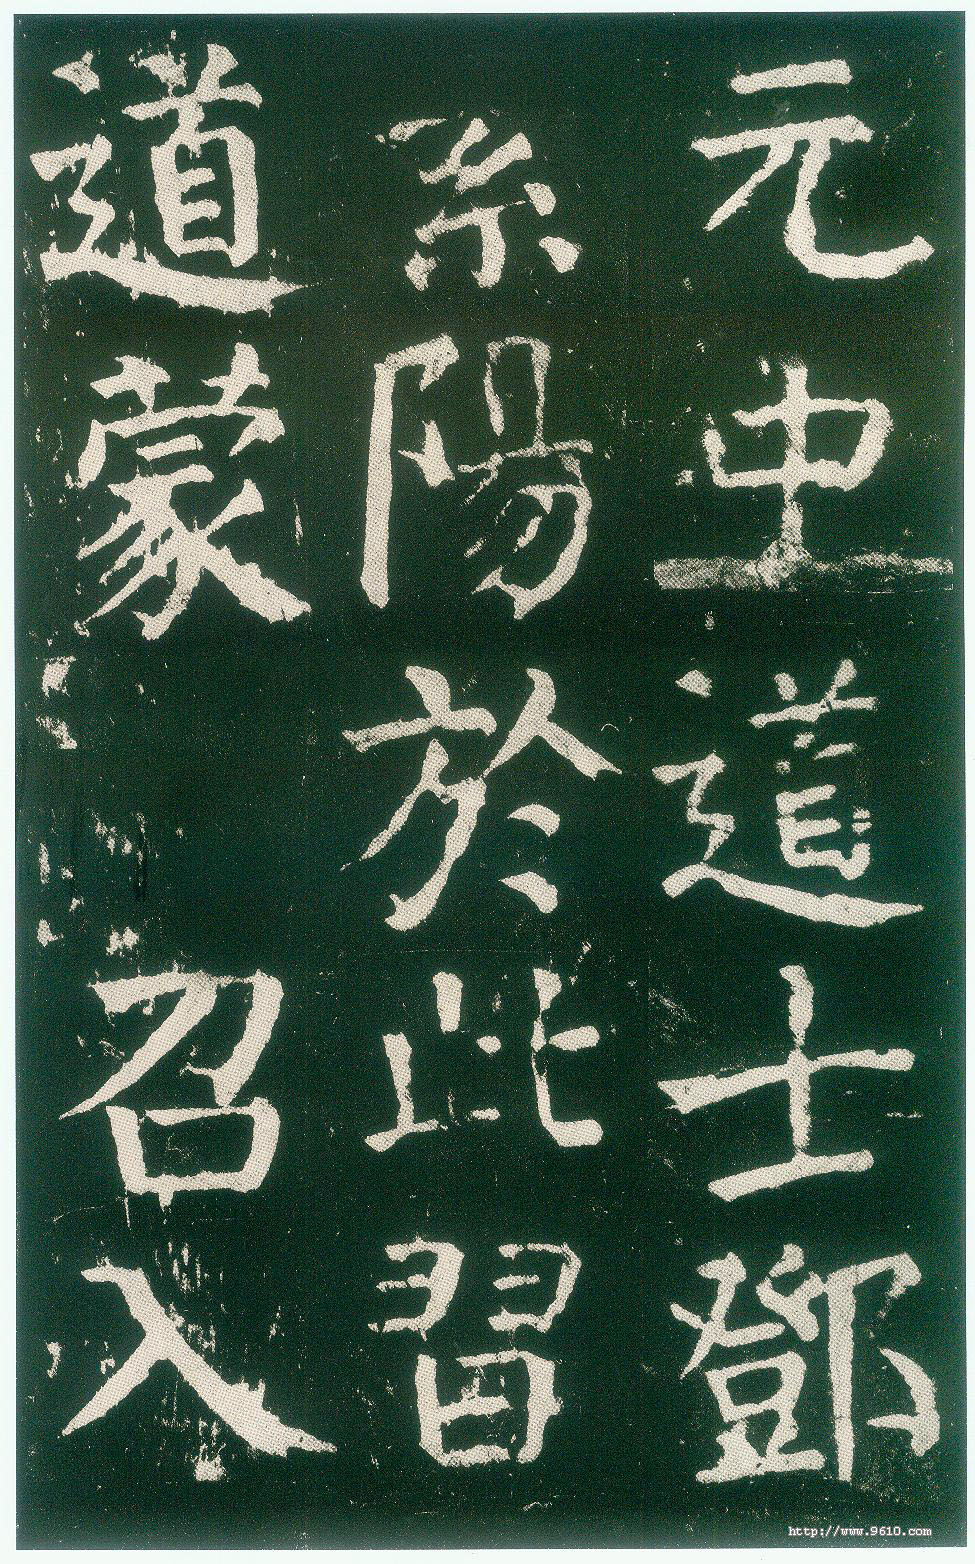 元中道士鄧
紫陽於此習
道蒙召入
http://www.9610.com